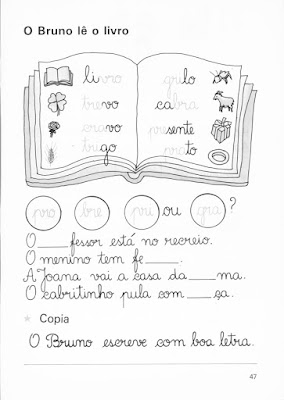 O Bruno lê o livro
livro grilo
trevo cabra
cravo presente
trigo prato
pro bre pri ou gra ?
O ____ fessor está no recreio.
O menino tem fe ____.
A Joana vai a casa da ____ ma.
O cabritinho pula com ____ ça.
* Copia
O Bruno escreve com boa letra.
47